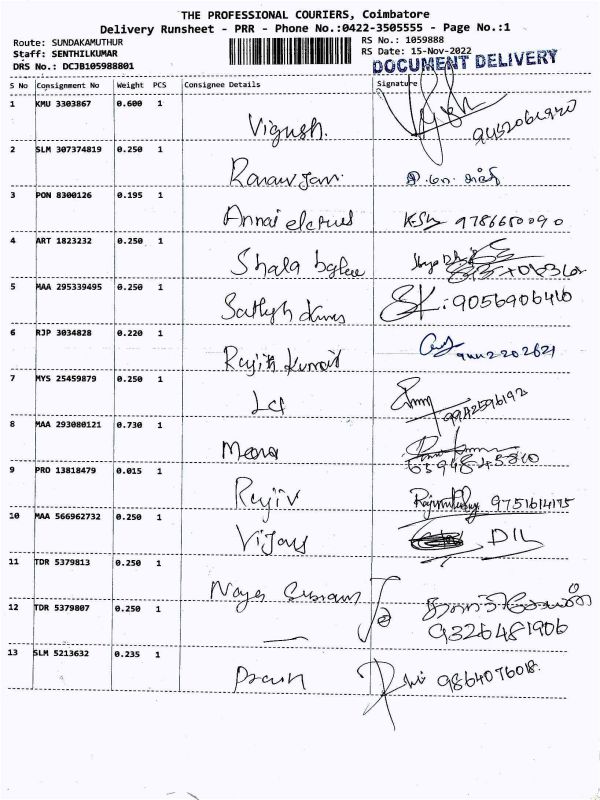 THE PROFESSIONAL COURIERS, Coimbatore
Delivery Runsheet - PRR - Phone No.:0422-3505555 - Page No.:1
Route: SUNDAKAMUTHUR RS No.: 1059888
Staff: SENTHILKUMAR RS Date: 15-Nov-2022
DRS No.: DCJB105988801 DOCUMENT DELIVERY
S No Consignment No Weight PCS Consignee Details Signature
1 KMU 3303867 0.600 1
Vignesh.
2 SLM 307374819 0.250 1
3 PON 8300126 0.195 1
Annai 9786650090
4 ART 1823232 0.250 1
Shala
5 MAA 295339495 0.250 1
SK: 9056906410
6 RJP 3034828 0.220 1
Rajith Kumar
7 MYS 25459879 0.250 1
9942596192
8 MAA 293080121 0.730 1
9 PRO 13818479 0.015 1
Rajiv 9751614175
10 MAA 566962732 0.250 1
Vijay DIL
11 TDR 5379813 0.250 1
12 TDR 5379807 0.250 1
9326481906
13 SLM 5213632 0.235 1
9864076018